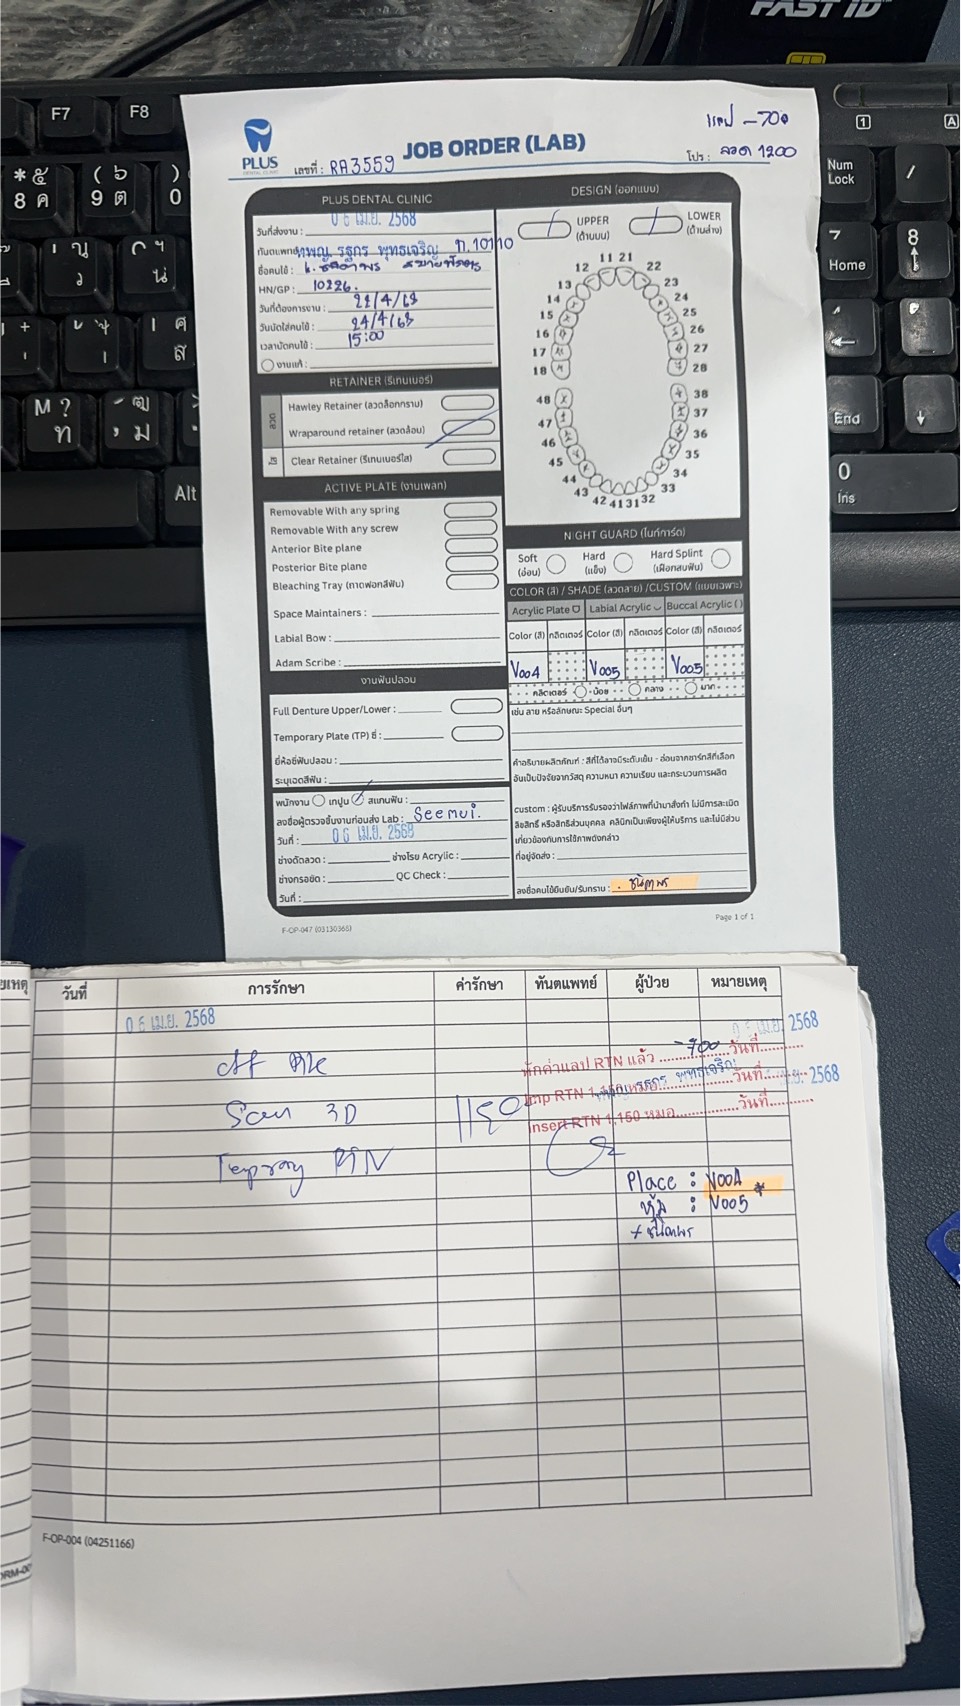 FAST ID
F7
F8
Num Lock
Home
End
Ins
Alt
แลป -700
PLUS
DENTAL CLINIC
เลขที่ : RA3559
JOB ORDER (LAB)
โปร : ลวด 1200
PLUS DENTAL CLINIC
วันที่ส่งงาน : 06 เม.ย. 2568
ทันตแพทย์ ทพญ. รฐกร พุทธเจริญ ท.10110
ชื่อคนไข้ :
HN/GP : 10226.
วันที่ต้องการงาน : 22/4/68
วันนัดใส่คนไข้ : 24/4/68
เวลานัดคนไข้ : 15:00
งานแก้ :
RETAINER (รีเทนเนอร์)
ลวด
Hawley Retainer (ลวดล็อกกราม)
Wraparound retainer (ลวดล้อม)
ใส
Clear Retainer (รีเทนเนอร์ใส)
ACTIVE PLATE (งานเพลท)
Removable With any spring
Removable With any screw
Anterior Bite plane
Posterior Bite plane
Bleaching Tray (ถาดฟอกสีฟัน)
Space Maintainers :
Labial Bow :
Adam Scribe :
งานฟันปลอม
Full Denture Upper/Lower :
Temporary Plate (TP) ซี่ :
ยี่ห้อซี่ฟันปลอม :
ระบุเฉดสีฟัน :
พนักงาน เทปูน สแกนฟัน :
ลงชื่อผู้ตรวจชิ้นงานก่อนส่ง Lab : Seemui.
วันที่ : 06 เม.ย. 2568
ช่างดัดลวด : ช่างโรย Acrylic :
ช่างกรอขัด : QC Check :
วันที่ :
F-OP-047 (03130368)
DESIGN (ออกแบบ)
UPPER (ด้านบน)
LOWER (ด้านล่าง)
11 21
12 22
13 23
14 24
15 25
16 26
17 27
18 28
48 38
47 37
46 36
45 35
44 34
43 33
42 41 31 32
NIGHT GUARD (ไนท์การ์ด)
Soft (อ่อน)
Hard (แข็ง)
Hard Splint (เฝือกสบฟัน)
COLOR (สี) / SHADE (ลวดลาย) /CUSTOM (แบบเฉพาะ)
Acrylic Plate Labial Acrylic Buccal Acrylic ( )
Color (สี) กลิตเตอร์ Color (สี) กลิตเตอร์ Color (สี) กลิตเตอร์
V004 V005 V005
กลิตเตอร์ น้อย กลาง มาก
เช่น ลาย หรือลักษณะ Special อื่นๆ
คำอธิบายผลิตภัณฑ์ : สีที่ได้อาจมีระดับเข้ม - อ่อนจากชาร์ทสีที่เลือก
อันเป็นปัจจัยจากวัสดุ ความหนา ความเรียบ และกระบวนการผลิต
custom : ผู้รับบริการรับรองว่าไฟล์ภาพที่นำมาสั่งทำ ไม่มีการละเมิด
ลิขสิทธิ์ หรือสิทธิส่วนบุคคล คลินิกเป็นเพียงผู้ให้บริการ และไม่มีส่วน
เกี่ยวข้องกับการใช้ภาพดังกล่าว
ที่อยู่จัดส่ง :
ลงชื่อคนไข้ยืนยัน/รับทราบ :
Page 1 of 1
วันที่ การรักษา ค่ารักษา ทันตแพทย์ ผู้ป่วย หมายเหตุ
06 เม.ย. 2568
Scan 3D
1150
หักค่าแลป RTN แล้ว -700 วันที่ เม.ย. 2568
Imp RTN 1,150 หมอ รฐกร พุทธเจริญ วันที่ เม.ย. 2568
Insert RTN 1,150 หมอ วันที่
Place : V004
หุ้ม : V005 *
F-OP-004 (04251166)